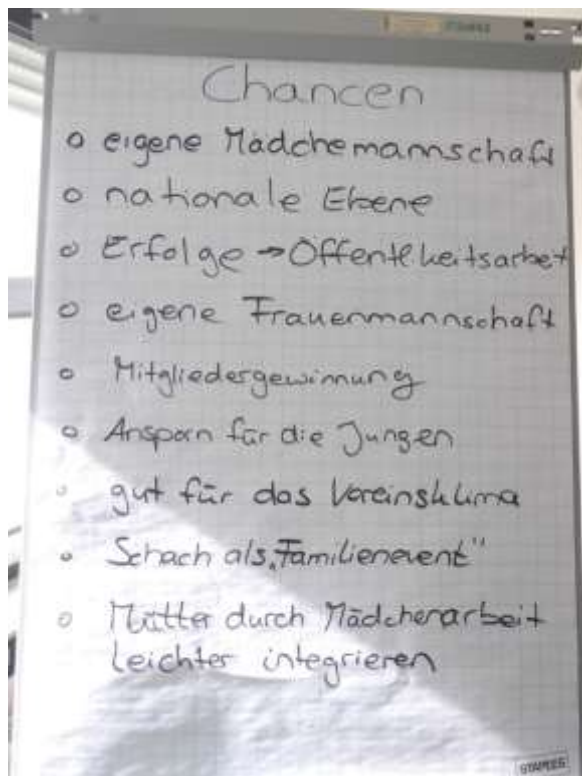 STAPLES
Chancen
o eigene Mädchemannschaft
o nationale Ebene
o Erfolge → Öffentlkeitsarbeit
o eigene Frauenmannschaft
o Mitgliedergewinnung
o Ansporn für die Jungen
o gut für das Vereinsklima
o Schach als „Familienevent"
o Mütter durch Mädchenarbeit
leichter integrieren
STAPLES